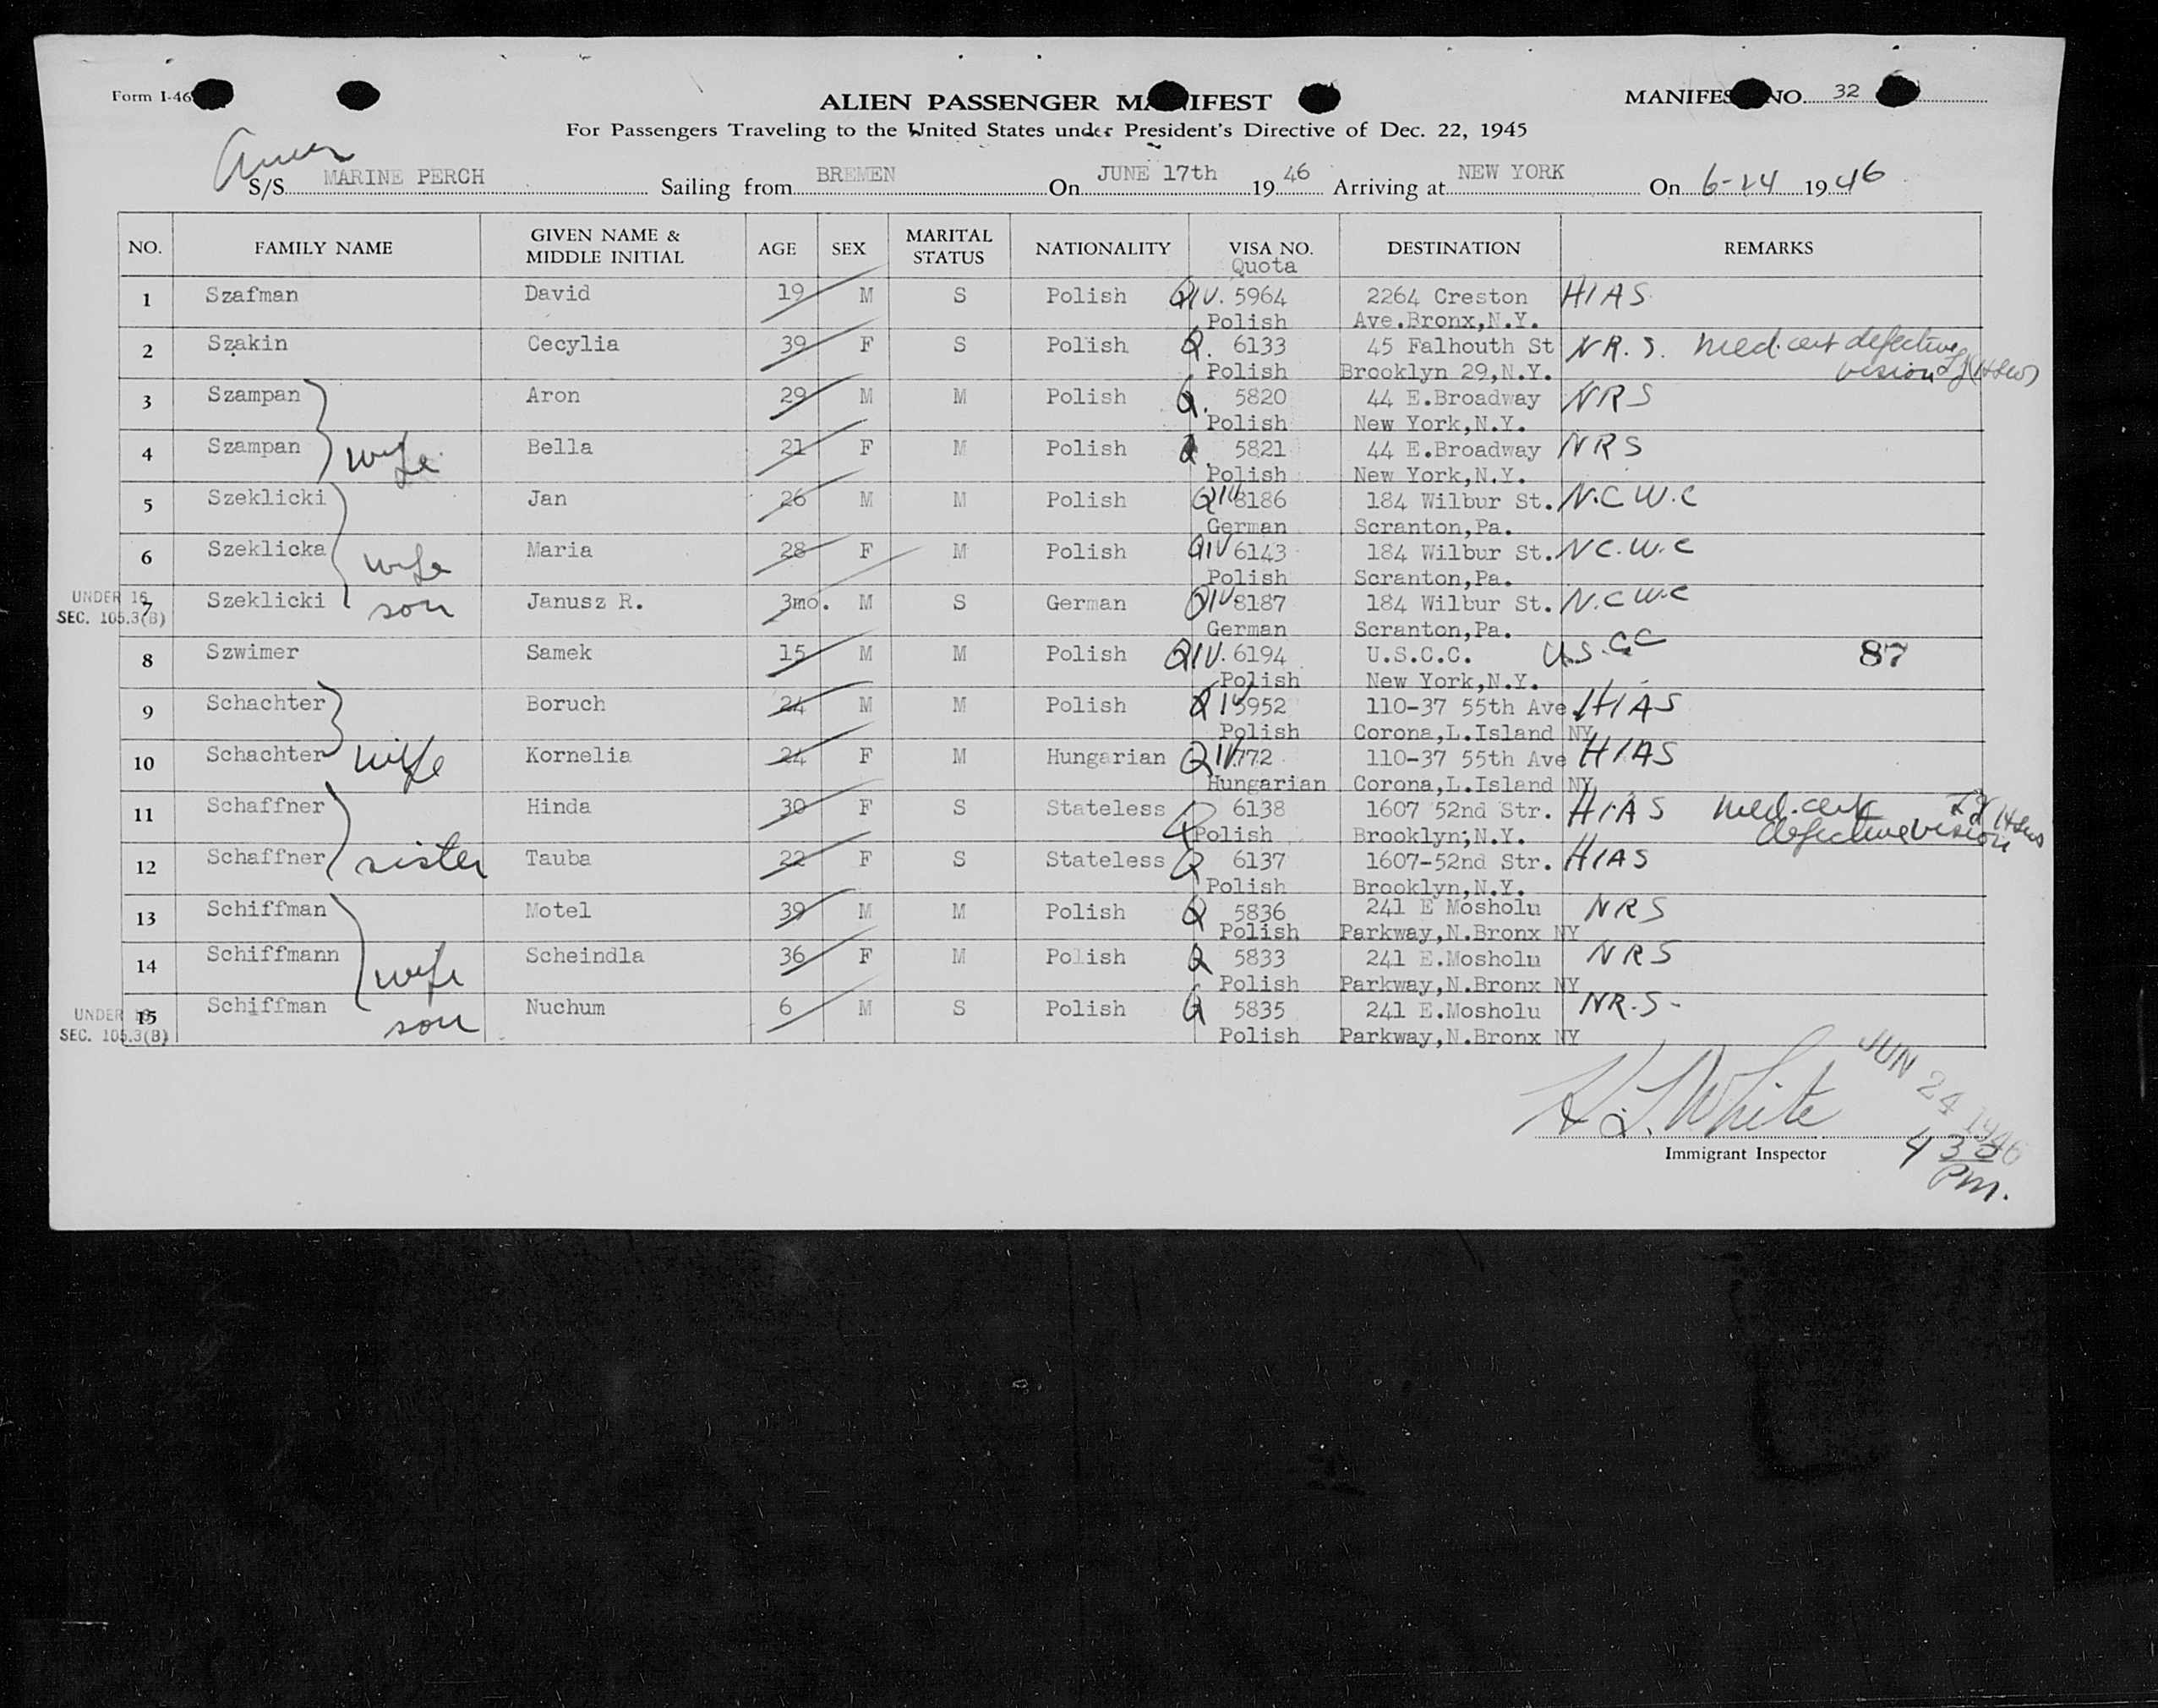 Form I-46
ALIEN PASSENGER MANIFEST
MANIFEST NO. 32
For Passengers Traveling to the United States under President's Directive of Dec. 22, 1945
S/S MARINE PERCH Sailing from BREMEN On JUNE 17th 19 46 Arriving at NEW YORK On 6-24 19 46
NO. FAMILY NAME GIVEN NAME & MIDDLE INITIAL AGE SEX MARITAL STATUS NATIONALITY VISA NO. Quota DESTINATION REMARKS
1 Szafman David 19 M S Polish QIV. 5964 2264 Creston HIAS
Polish Ave.Bronx,N.Y.
2 Szakin Cecylia 39 F S Polish Q. 6133 45 Falhouth St N R. S. med. cert defective
Polish Brooklyn 29,N.Y. vision
3 Szampan Aron 29 M M Polish Q. 5820 44 E.Broadway NRS
Polish New York,N.Y.
4 Szampan wife Bella 21 F M Polish Q. 5821 44 E.Broadway NRS
Polish New York,N.Y.
5 Szeklicki Jan 26 M M Polish QIV 8186 184 Wilbur St. N.C.W.C
German Scranton,Pa.
6 Szeklicka wife Maria 28 F M Polish QIV 6143 184 Wilbur St. N C.W.C
Polish Scranton,Pa.
UNDER 16
SEC. 105.3(B)
7 Szeklicki son Janusz R. 3mo. M S German QIV 8187 184 Wilbur St. N.C W.C
German Scranton,Pa.
8 Szwimer Samek 15 M M Polish QIV. 6194 U.S.C.C. U.S.CC 87
Polish New York,N.Y.
9 Schachter Boruch 24 M M Polish QIV 5952 110-37 55th Ave. HIAS
Polish Corona,L.Island NY
10 Schachter wife Kornelia 24 F M Hungarian QIV 772 110-37 55th Ave HIAS
Hungarian Corona,L.Island NY
11 Schaffner Hinda 30 F S Stateless Q 6138 1607 52nd Str. HIAS med. cert
Polish Brooklyn,N.Y. defective vision
12 Schaffner sister Tauba 22 F S Stateless Q 6137 1607-52nd Str. HIAS
Polish Brooklyn,N.Y.
13 Schiffman Motel 39 M M Polish Q 5836 241 E Mosholu NRS
Polish Parkway,N.Bronx NY
14 Schiffmann wife Scheindla 36 F M Polish Q 5833 241 E.Mosholu NRS
Polish Parkway,N.Bronx NY
UNDER 16
SEC. 105.3(B)
15 Schiffman son Nuchum 6 M S Polish Q 5835 241 E.Mosholu NR.S-
Polish Parkway,N.Bronx NY
JUN 24 1946
White
Immigrant Inspector
4 35
PM.